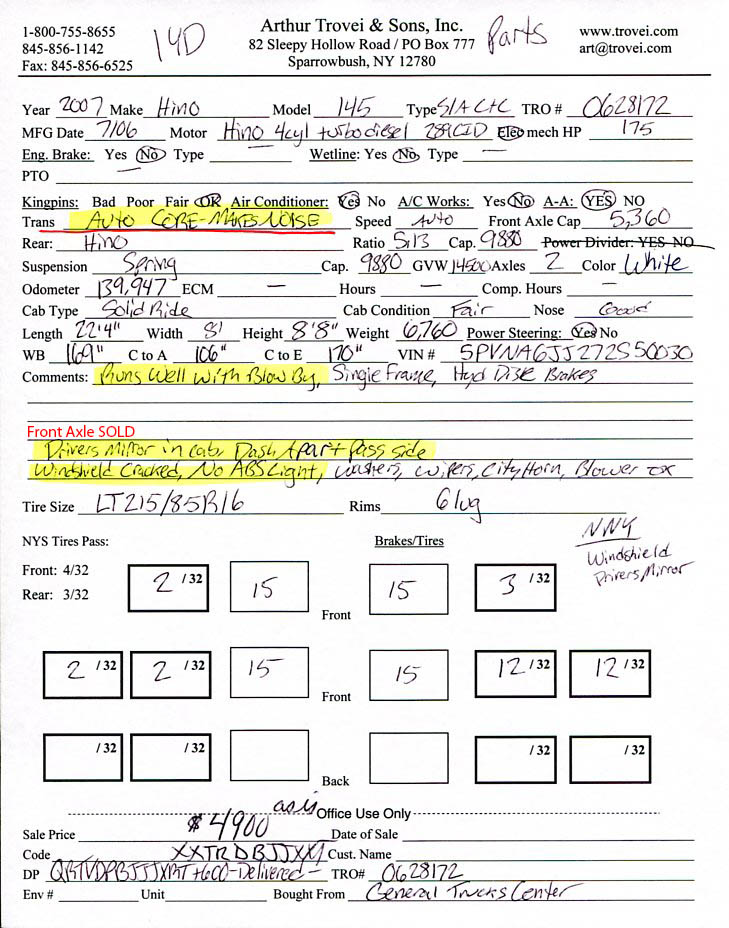 1-800-755-8655
845-856-1142
Fax: 845-856-6525
14D
Arthur Trovei & Sons, Inc.
82 Sleepy Hollow Road / PO Box 777
Sparrowbush, NY 12780
Parts
www.trovei.com
art@trovei.com
Year 2007 Make Hino Model 145 Type S/A C+C TRO # 0628172
MFG Date 7/06 Motor Hino 4cyl turbodiesel 289CID Elec mech HP 175
Eng. Brake: Yes No Type — Wetline: Yes No Type —
PTO —
Kingpins: Bad Poor Fair OK Air Conditioner: Yes No A/C Works: Yes No A-A: YES NO
Trans AUTO CORE-MAKES NOISE Speed Auto Front Axle Cap 5,360
Rear: Hino Ratio 5.13 Cap. 9880 Power Divider: YES NO
Suspension Spring Cap. 9880 GVW 14500 Axles 2 Color White
Odometer 139,947 ECM — Hours — Comp. Hours —
Cab Type Solid Ride Cab Condition Fair Nose Good
Length 22'4" Width 8' Height 8'8" Weight 6,760 Power Steering: Yes No
WB 169" C to A 106" C to E 170" VIN # 5PVNA6JJ272S50030
Comments: Runs Well With Blow By, Single Frame, Hyd Disk Brakes
Front Axle SOLD
Drivers Mirror in cab, Dash Apart Pass side
Windshield Cracked, No ABS Light, Washers, Wipers, City Horn, Blower ox
Tire Size LT215/85R16 Rims 6 lug
NYS Tires Pass:
Brakes/Tires
NNY
Windshield
Drivers Mirror
Front: 4/32
Rear: 3/32
2 /32 15 15 3 /32
Front
2 /32 2 /32 15 15 12 /32 12 /32
Front
/32 /32 /32 /32
Back
as is
Office Use Only
Sale Price $4900 Date of Sale
Code XXTRDBJJXX Cust. Name
DP QRTVDPBJJJXRT +600-Delivered- TRO# 0628172
Env # Unit Bought From General Trucks Center